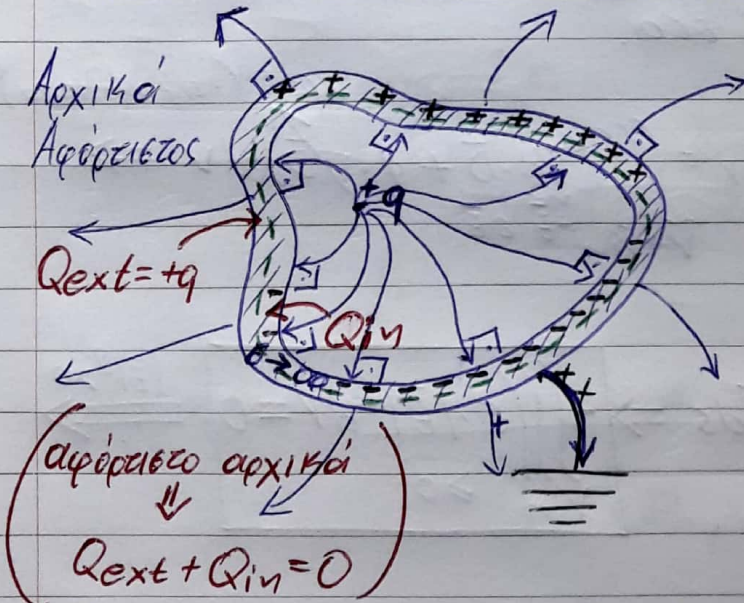 Αρχικά
Αφόρτιστος
+q
Qext=+q
Qin
(αφόρτιστο αρχικά
⇓
Qext+Qin=0)